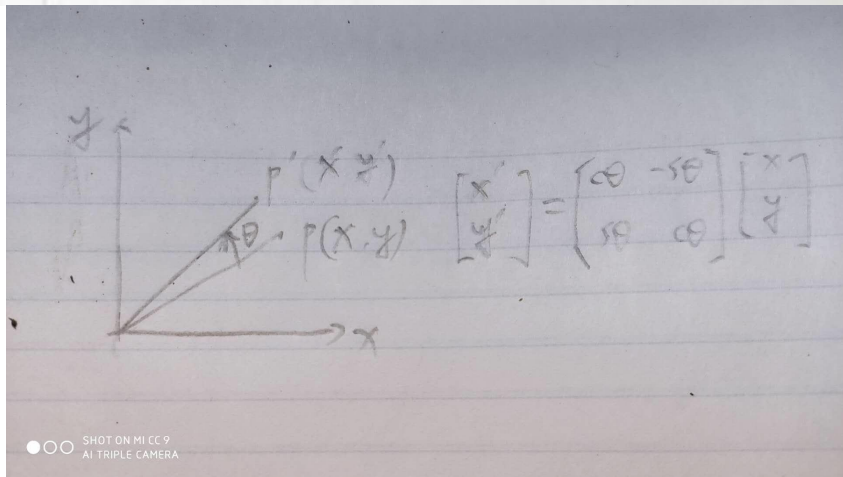 y
p'(x' y')
θ p(x,y)
x
[x' y'] = [cθ -sθ sθ cθ] [x y]
SHOT ON MI CC 9
AI TRIPLE CAMERA